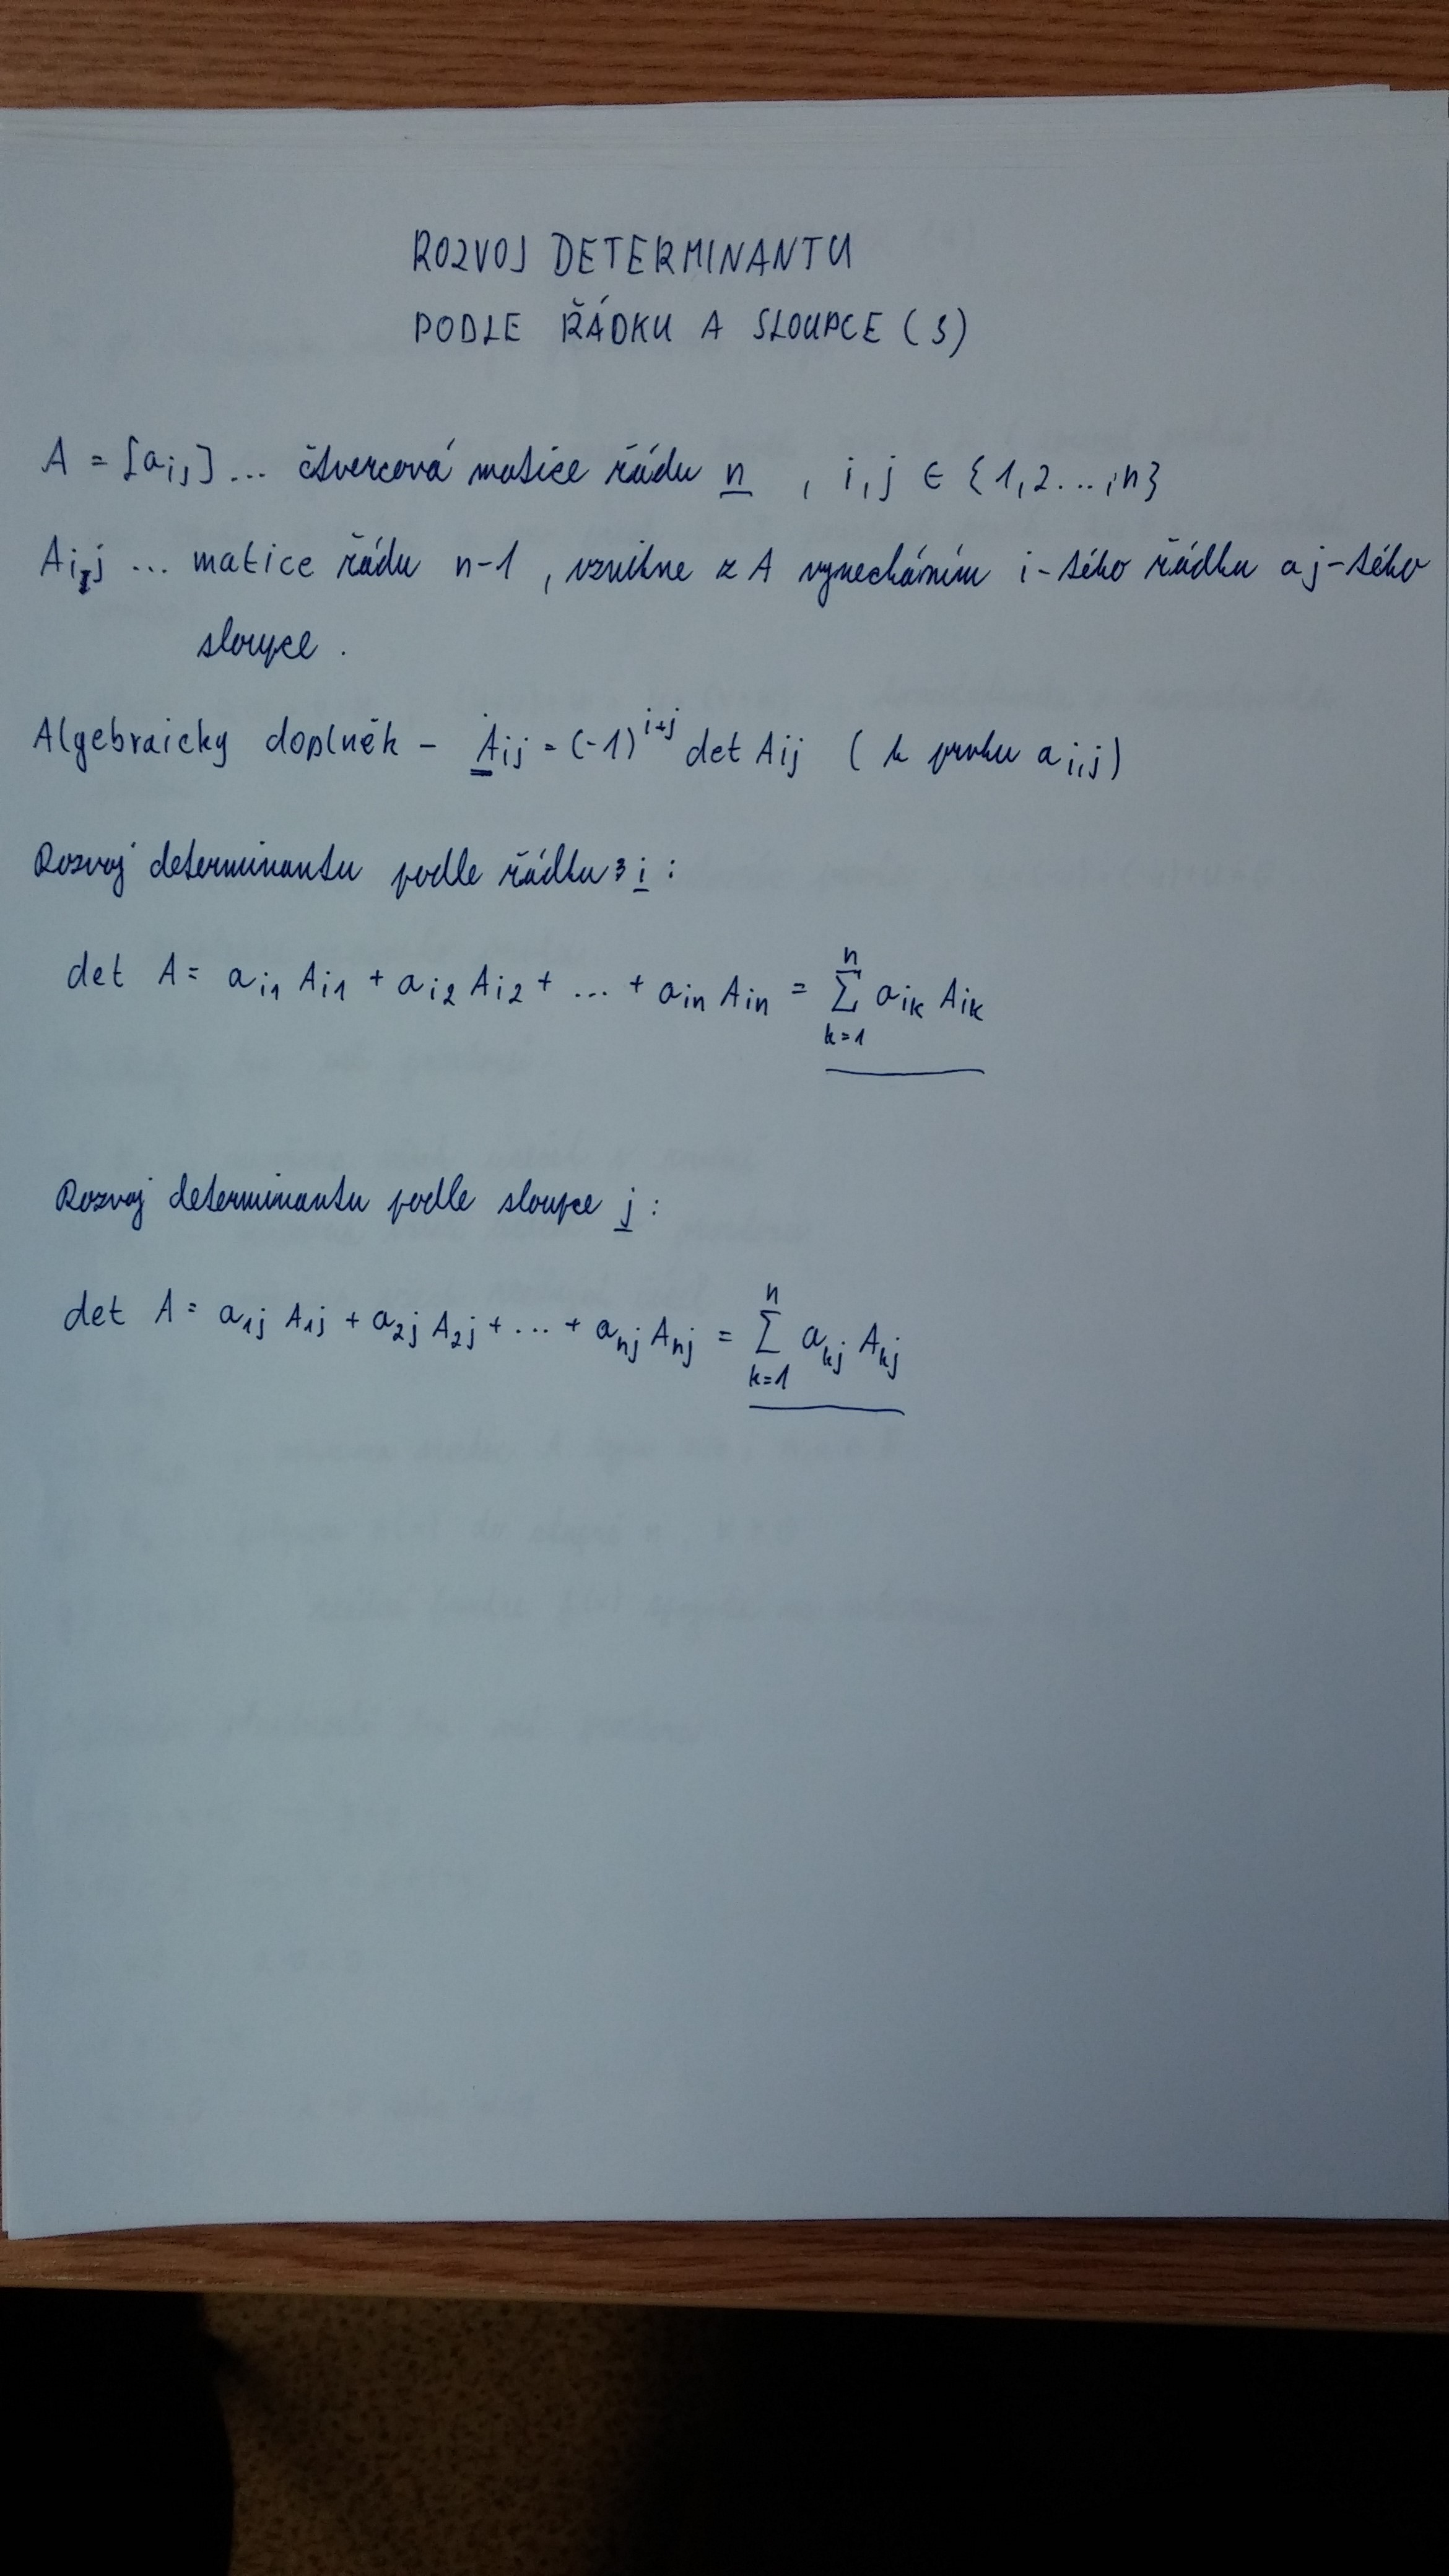 ROZVOJ DETERMINANTU
PODLE ŘÁDKU A SLOUPCE (3)
A = [aij] ... čtvercová matice řádu n , i,j ∈ {1,2...,n}
Ai,j ... matice řádu n-1 , vznikne z A vynecháním i-tého řádku a j-tého
sloupce .
Algebraický doplněk - Aij = (-1)^i+j det Aij ( k prvku ai,j)
Rozvoj determinantu podle řádku i :
det A = ai1 Ai1 + ai2 Ai2 + ... + ain Ain = n∑k=1 aik Aik
Rozvoj determinantu podle sloupce j :
det A = a1j A1j + a2j A2j + ... + anj Anj = n∑k=1 akj Akj